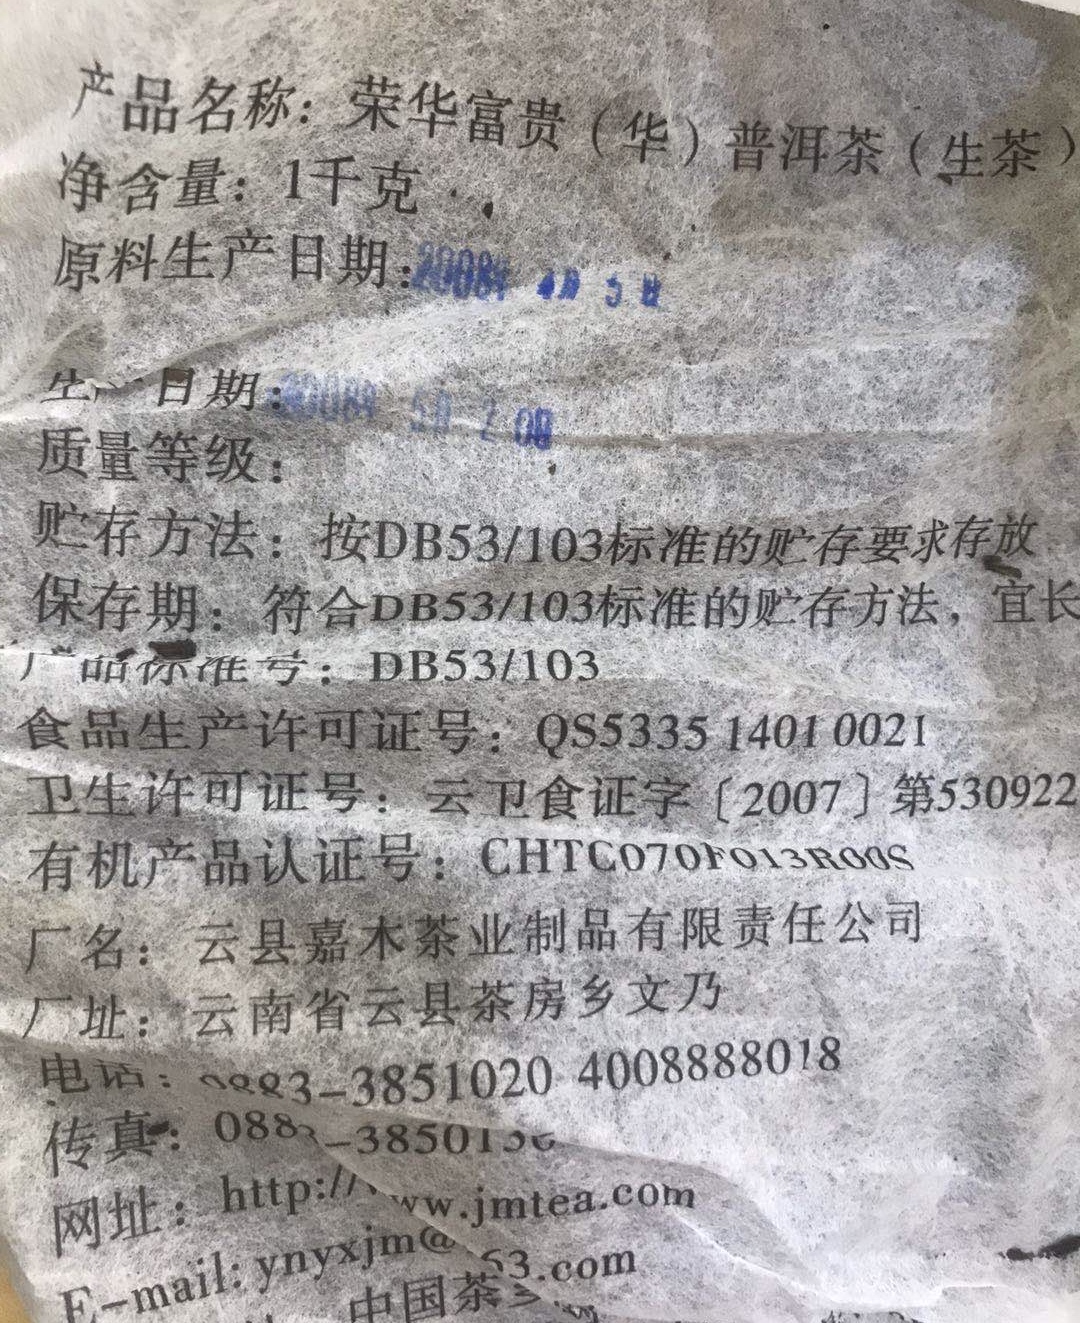 产品名称：荣华富贵（华）普洱茶（生茶）
净含量：1千克
原料生产日期：2008年 4月 5日
生产日期：2008年 5月 7日
质量等级：
贮存方法：按DB53/103标准的贮存要求存放
保存期：符合DB53/103标准的贮存方法，宜长
产品标准号：DB53/103
食品生产许可证号：QS5335 1401 0021
卫生许可证号：云卫食证字〔2007〕第530922
有机产品认证号：CHTC070F013R00S
厂名：云县嘉木茶业制品有限责任公司
厂址：云南省云县茶房乡文乃
电话：0883-3851020 4008888018
传真：0883-385013
网址：http://www.jmtea.com
E-mail:ynyxjm@63.com
中国茶